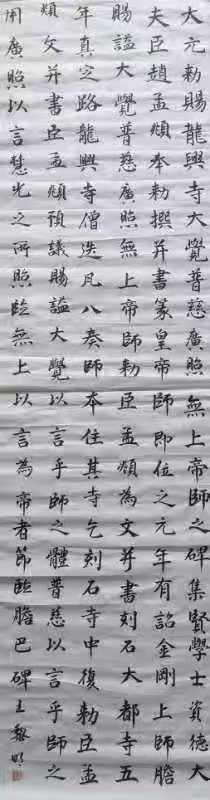 大元勅賜龍興寺大覺普慈廣照無上帝師之碑集賢學士資德大
夫臣趙孟頫奉勅撰并書篆皇帝師即位之元年有詔金剛上師膽
賜謚大覺普慈廣照無上帝師勅臣孟頫為文并書刻石大都寺五
年真定路龍興寺僧迭凡八奏師本住其寺乞刻石寺中復勅臣孟
頫文并書臣孟頫預議賜謚大覺以言乎師之體普慈以言乎師之
用廣照以言慧光之所照臨無上以言為帝者節臨膽巴碑王黎明